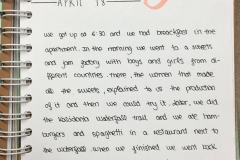 APRIL 18
we got up at 6:30 and we had breakfast in the
apartment. In the morning we went to a sweets
and jam factory with boys and girls from di-
fferent countries. There, the women that made
all the sweets, explained to us the production
of it and then we could try it. Later, we did
the waterfall trail and we ate ham-
burgers and spaghetti in a restaurant next to
the waterfalls when we finished we went back